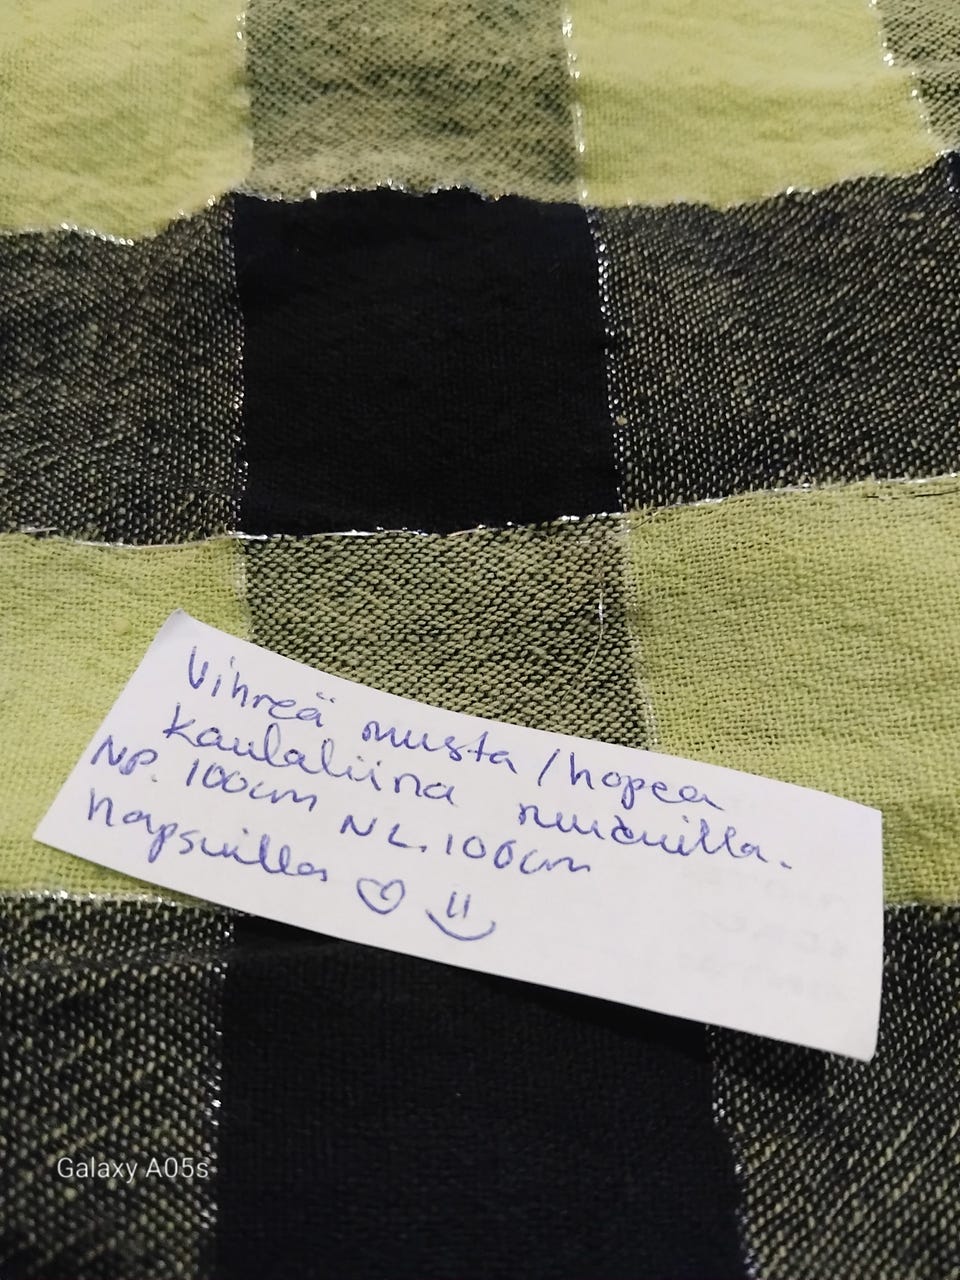 Vihreä musta / hopea
kaulaliina ruuduilla.
NP. 100cm NL. 100cm
hapsuilla ♡
Galaxy A05s